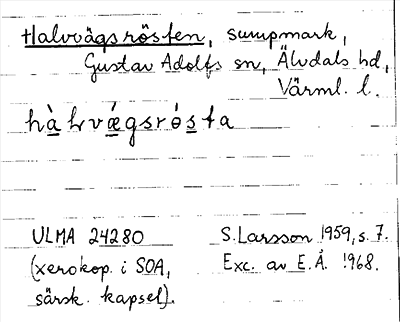 Halvvägsrösten, sumpmark,
Gustav Adolfs sn, Älvdals hd,
Värml. l.
hàlvǽgsrósta
ULMA 24280
(xerokop. i SOA,
särsk. kapsel).
S. Larsson 1959, s. 7.
Exc. av E. Å. 1968.